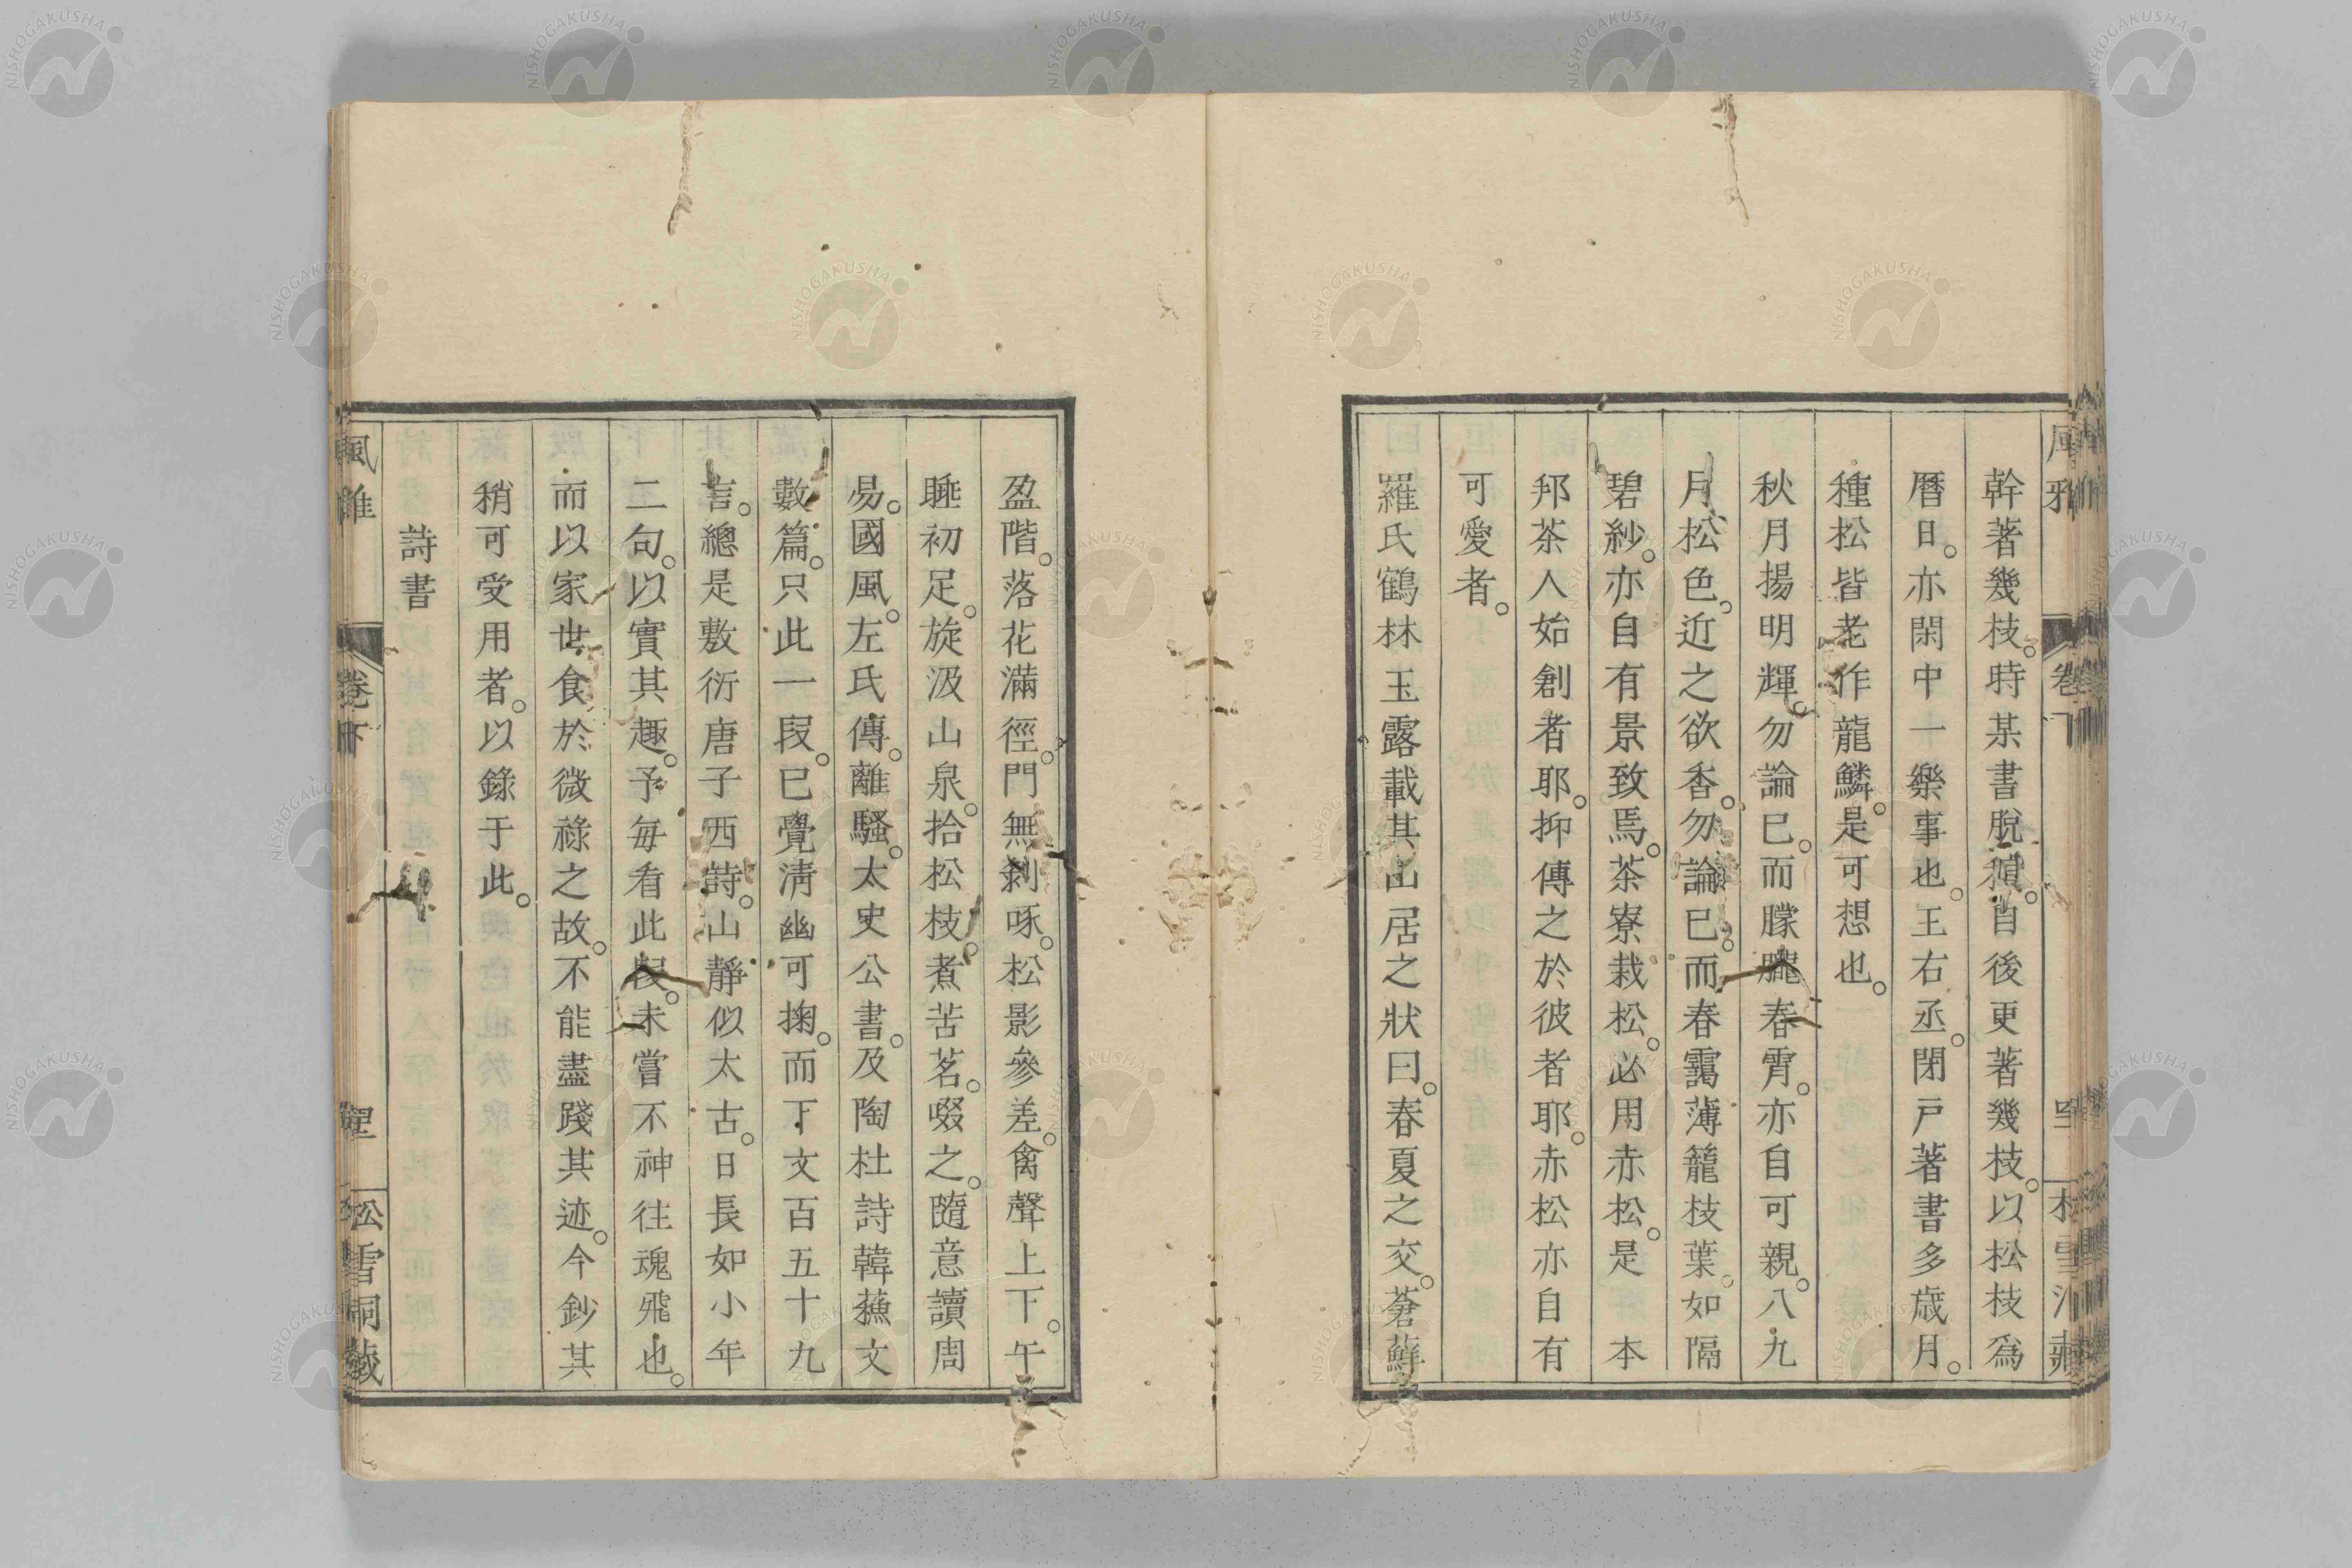 幹著幾枝。時某書脫稿。自後更著幾枝。以松枝爲
曆日。亦閑中一樂事也。王右丞。閉戸著書多歳月。
種松皆老作龍鱗。是可想也。
秋月揚明輝。勿論已。而朦朧春霄。亦自可親。八九
月松色。近之欲香。勿論已。而春靄薄籠枝葉。如隔
碧紗。亦自有景致焉。茶寮栽松。必用赤松。是本
邦茶人始創者耶。抑傳之於彼者耶。赤松亦自有
可愛者。
羅氏鶴林玉露載其山居之狀曰。春夏之交。蒼蘚
盈階。落花滿徑。門無剝啄。松影參差。禽聲上下。午
睡初足。旋汲山泉。拾松枝。煮苦茗。啜之。隨意讀周
易。國風。左氏傳。離騷。太史公書。及陶杜詩韓蘓文
數篇。只此一段。已覺淸幽可掬。而下文百五十九
言。總是敷衍唐子西詩。山靜似太古。日長如小年
二句。以實其趣。予每看此段。未嘗不神往魂飛也。
而以家世食於微祿之故。不能盡踐其迹。今鈔其
稍可受用者。以錄于此。
詩書
風雅
卷下
松雪洞藏